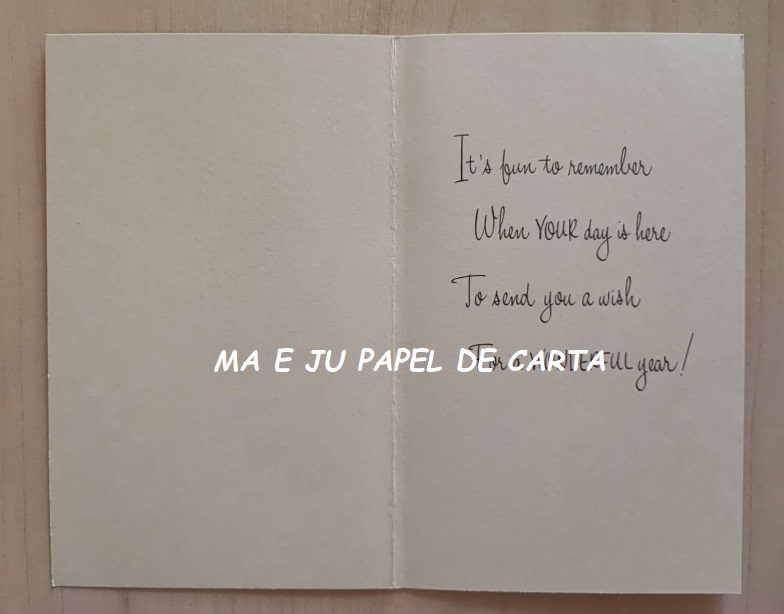 It's fun to remember
When YOUR day is here
To send you a wish
For a WONDERFUL year!
MA E JU PAPEL DE CARTA